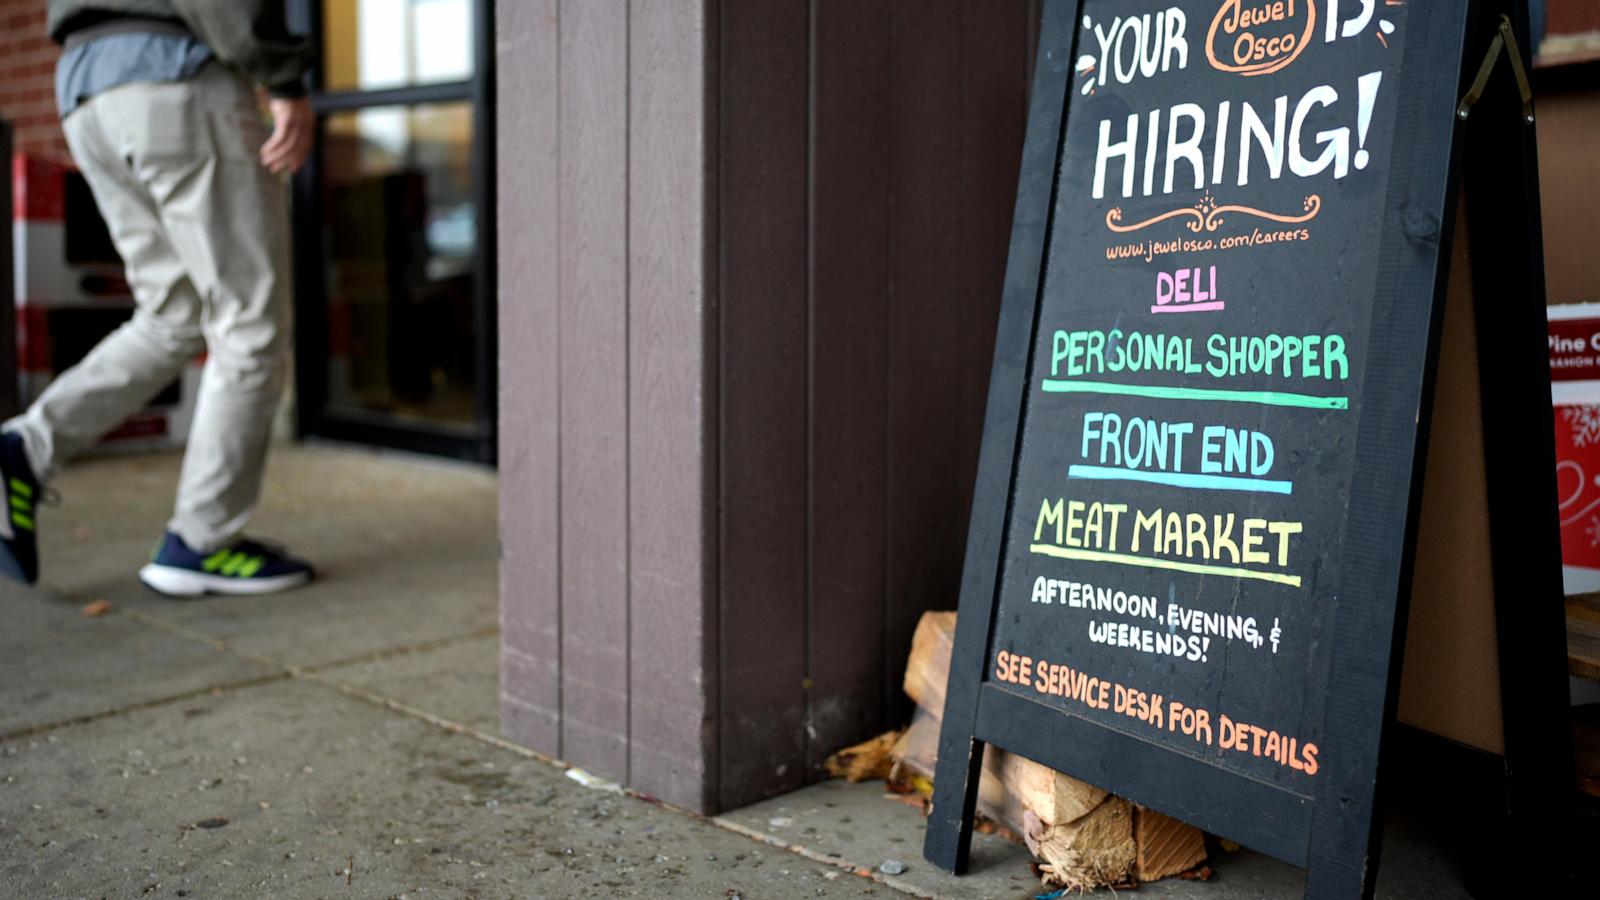 YOUR Jewel Osco IS
HIRING!
www.jewelosco.com/careers
DELI
PERSONAL SHOPPER
FRONT END
MEAT MARKET
AFTERNOON, EVENING, &
WEEKENDS!
SEE SERVICE DESK FOR DETAILS
Pine